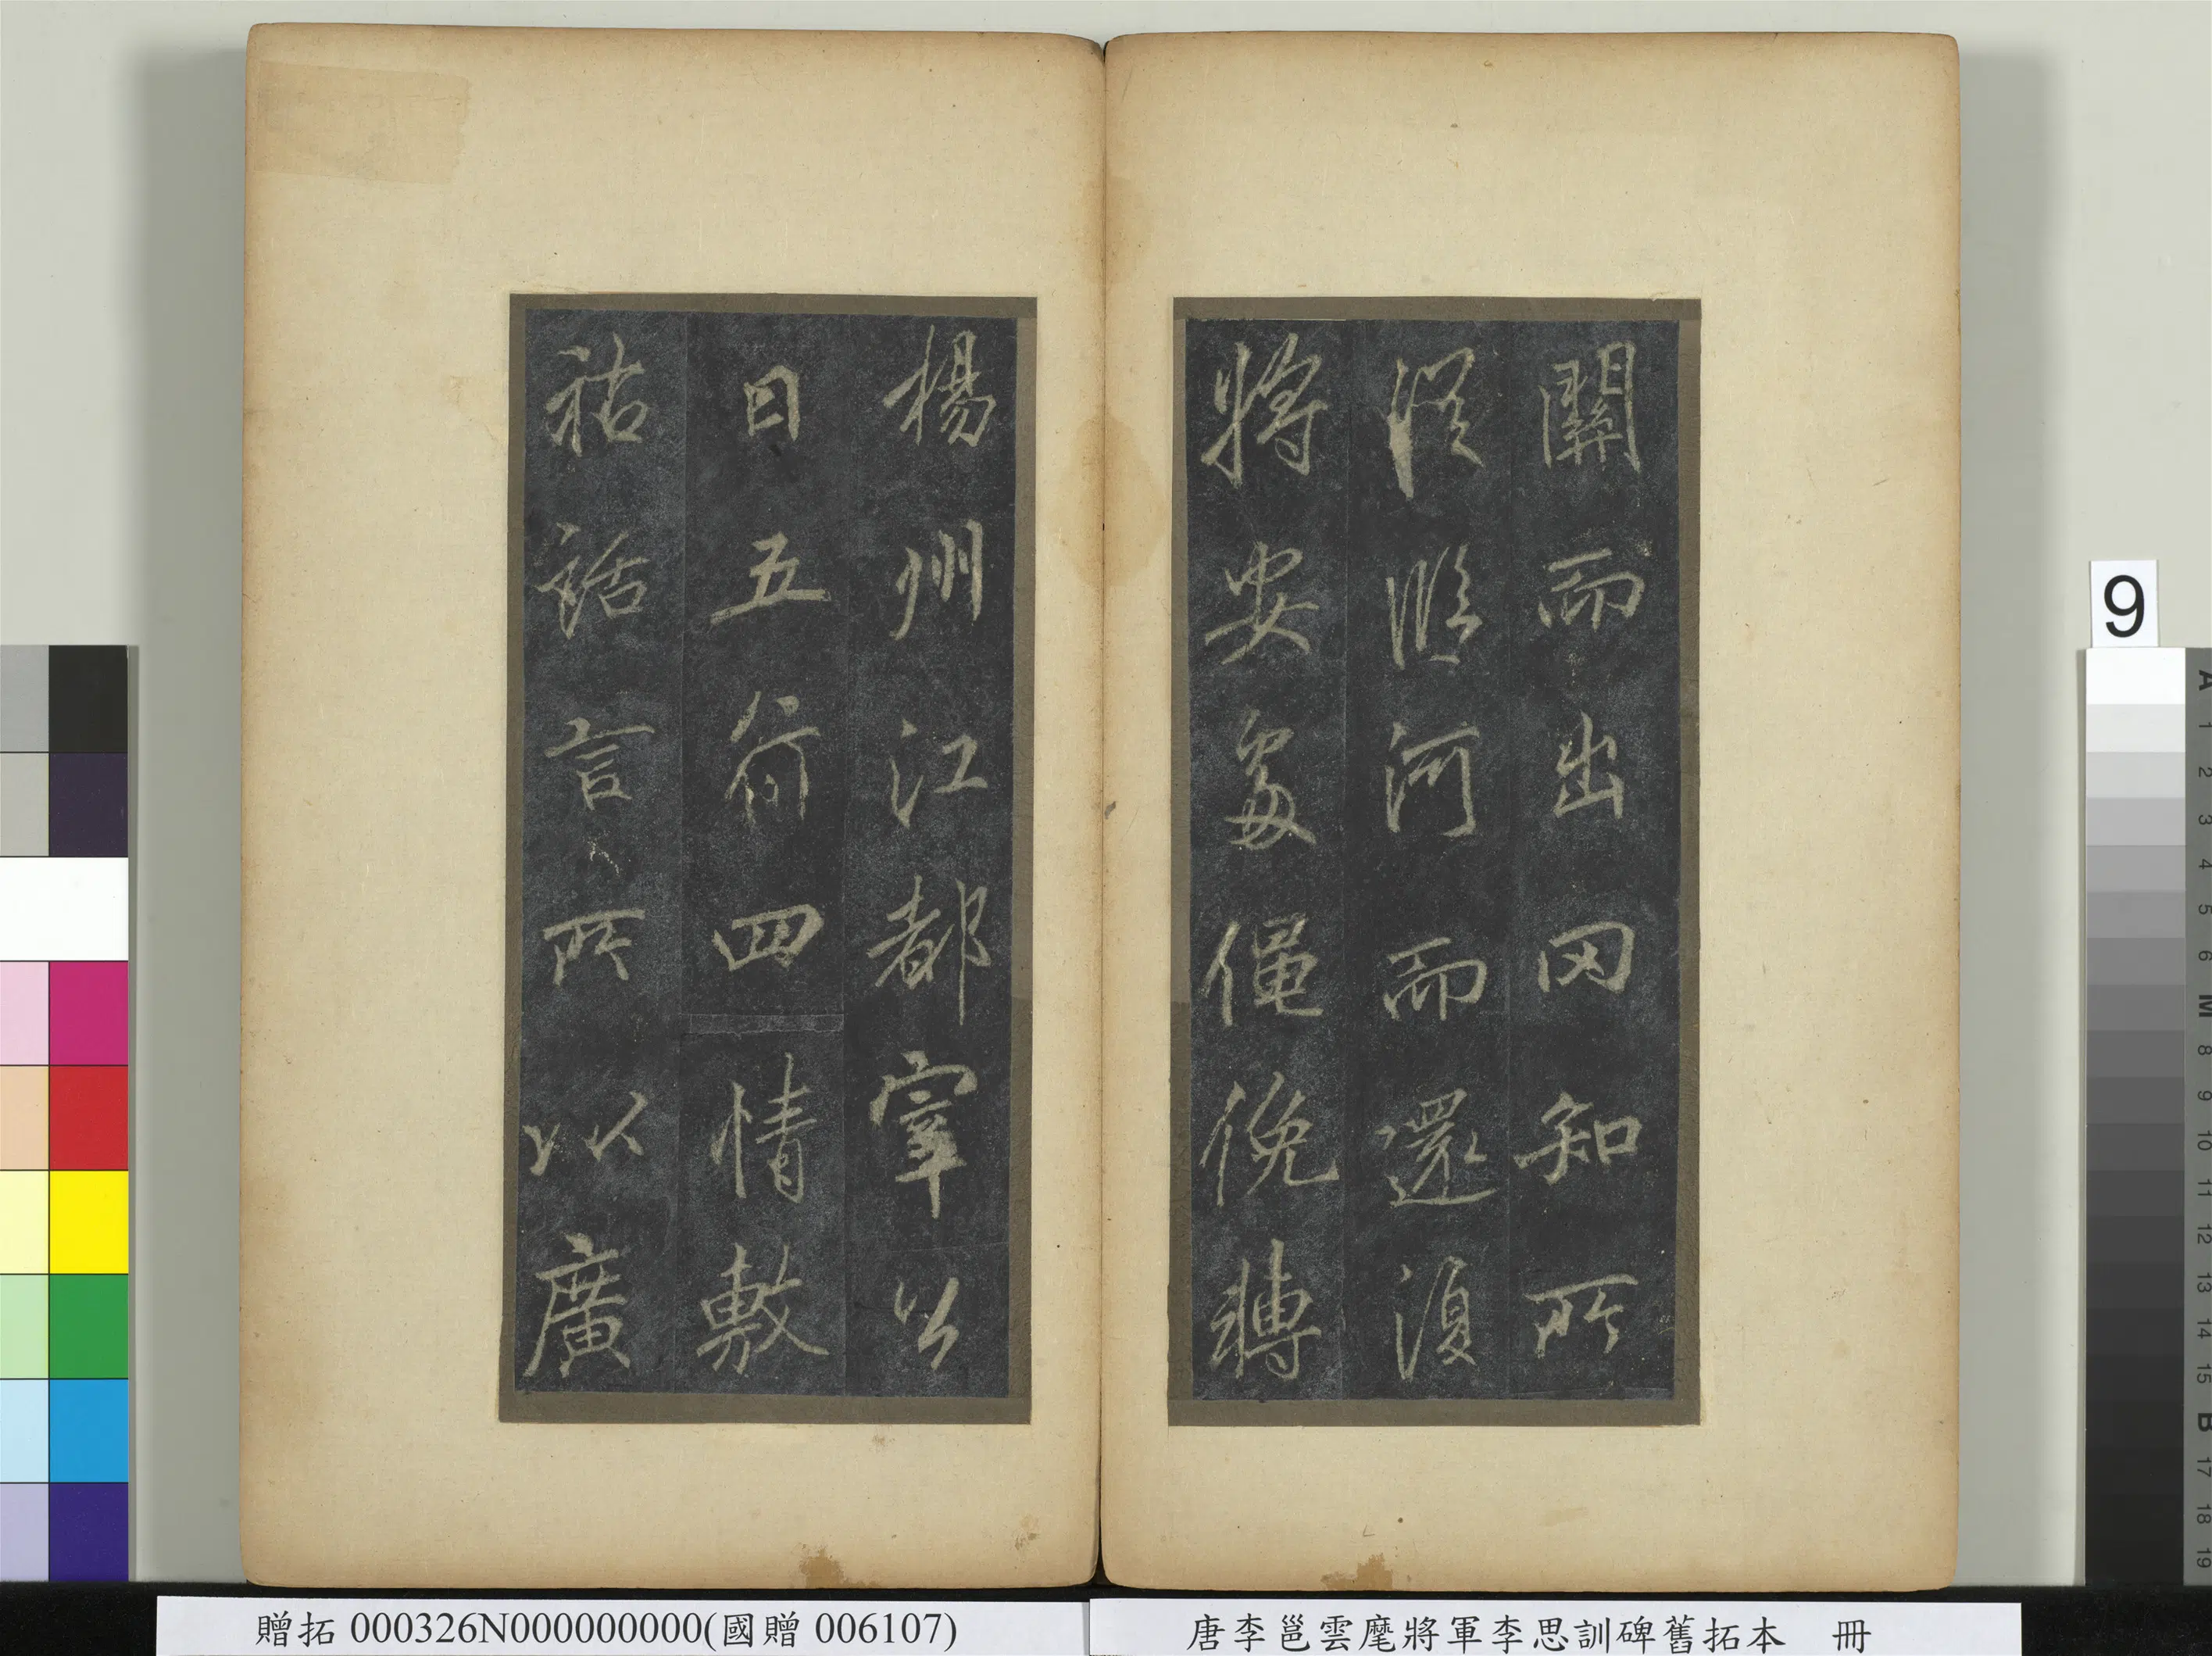 關而出罔知所
從臨河而還復
將安處僶俛轉
楊州江都宰公
曰五四情敷
祜話言所以廣
9
贈拓 000326N000000000(國贈 006107)
唐李邕雲麾將軍李思訓碑舊拓本 冊
A 1 2 3 4 5 6 M 8 9 10 11 12 13 14 15 B 17 18 19